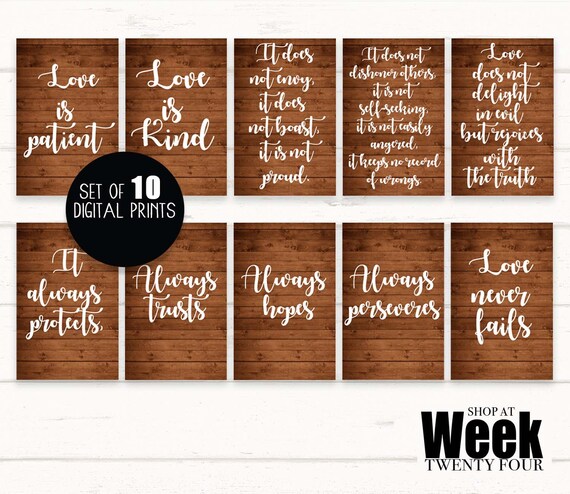 Love
is
patient
Love
is
Kind
It does
not envy,
it does
not boast,
it is not
proud.
It does not
dishonor others,
it is not
self-seeking,
it is not easily
angered,
it keeps no record
of wrongs.
Love
does not
delight
in evil
but rejoices
with
the truth
SET OF 10
DIGITAL PRINTS
It
always
protects,
Always
trusts
Always
hopes
Always
perseveres
Love
never
fails
SHOP AT
Week
TWENTY FOUR